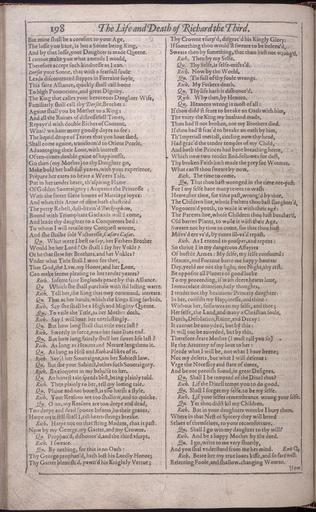 198 The Life and Death of Richard the Third.
But mine shall be a comfort to your Age,
The losse you haue, is but a Sonne being King,
And by that losse, your Daughter is made Queene.
I cannot make you what amends I would,
Therefore accept such kindnesse as I can.
Dorset your Sonne, that with a fearfull soule
Leads discontented steppes in Forraine soyle,
This faire Alliance, quickly shall call home
To high Promotions, and great Dignity.
The King that calles your beauteous Daughter Wife,
Familiarly shall call thy Dorset, Brother:
Againe shall you be Mother to a King:
And all the Ruines of distressefull Times,
Repayr'd with double Riches of Content.
What? we haue many goodly dayes to see:
The liquid drops of Teares that you haue shed,
Shall come againe, transform'd to Orient Pearle,
Aduantaging their Loue, with interest
Often-times double gaine of happinesse.
Go then (my Mother) to thy Daughter go,
Make bold her bashfull yeares, with your experience,
Prepare her eares to heare a Woers Tale.
Put in her tender heart, th'aspiring Flame
Of Golden Soueraignty: Acquaint the Princesse
With the sweet silent houres of Marriage ioyes:
And when this Arme of mine hath chastised
The petty Rebell, dull-brain'd Buckingham,
Bound with Triumphant Garlands will I come,
And leade thy daughter to a Conquerors bed:
To whom I will retaile my Conquest wonne,
And she shalbe sole Victoresse, Cæsars Cæsar.
Qu. What were I best to say, her Fathers Brother
Would be her Lord? Or shall I say her Vnkle?
Or he that slew her Brothers, and her Vnkles?
Vnder what Title shall I woo for thee,
That God, the Law, my Honor, and her Loue,
Can make seeme pleasing to her tender yeares?
Rich. Infer faire Englands peace by this Alliance.
Qu. Which she shall purchase with stil lasting warre.
Rich. Tell her, the King that may command, intreats.
Qu. That at her hands, which the kings King forbids.
Rich. Say she shall be a High and Mighty Queene.
Qu. To vaile the Title, as her Mother doth.
Rich. Say I will loue her euerlastingly.
Qu. But how long shall that title euer last?
Rich. Sweetly in force, vnto her faire liues end.
Qu. But how long fairely shall her sweet life last?
Rich. As long as Heauen and Nature lengthens it.
Qu. As long as Hell and Richard likes of it.
Rich. Say, I her Soueraigne, am her Subiect low.
Qu. But she your Subiect, lothes such Soueraignty.
Rich. Be eloquent in my behalfe to her.
Qu. An honest tale speeds best, being plainly told.
Rich. Then plainly to her, tell my louing tale.
Qu. Plaine and not honest, is too harsh a style.
Rich. Your Reasons are too shallow, and to quicke.
Qu. O no, my Reasons are too deepe and dead,
Too deepe and dead (poore Infants) in their graues,
Harpe on it still shall I, till heart-strings breake.
Rich. Harpe not on that string Madam, that is past.
Now by my George, my Garter, and my Crowne.
Qu. Prophan'd, dishonor'd, and the third vsurpt.
Rich. I sweare.
Qu. By nothing, for this is no Oath:
Thy George prophan'd, hath lost his Lordly Honor;
Thy Garter blemish'd, pawn'd his Knightly Vertue;
Thy Crowne vsurp'd, disgrac'd his Kingly Glory:
If something thou would'st sweare to be beleeu'd,
Sweare then by something, that thou hast not wrong'd.
Rich. Then by my Selfe.
Qu. Thy Selfe, is selfe-misus'd.
Rich. Now by the World.
Qu. 'Tis full of thy foule wrongs.
Rich. My Fathers death.
Qu. Thy life hath it dishonor'd.
Rich. Why then, by Heauen.
Qu. Heauens wrong is most of all:
If thou didd'st feare to breake an Oath with him,
The vnity the King my husband made,
Thou had'st not broken, nor my Brothers died.
If thou had'st fear'd to breake an oath by him,
Th'Imperiall mettall, circling now thy head,
Had grac'd the tender temples of my Child,
And both the Princes had bene breathing heere,
Which now two tender Bed-fellowes for dust,
Thy broken Faith hath made the prey for Wormes.
What can'st thou sweare by now.
Rich. The time to come.
Qu. That thou hast wronged in the time ore-past:
For I my selfe haue many teares to wash
Heereafter time, for time past, wrong'd by thee.
The Children liue, whose Fathers thou hast slaughter'd,
Vngouern'd youth, to waile it with their age:
The Parents liue, whose Children thou hast butcher'd,
Old barren Plants, to waile it with their Age.
Sweare not by time to come, for that thou hast
Misvs'd ere vs'd, by times ill-vs'd repast.
Rich. As I entend to prosper, and repent:
So thriue I in my dangerous Affayres
Of hostile Armes: My selfe, my selfe confound:
Heauen, and Fortune barre me happy houres:
Day, yeeld me not thy light; nor Night, thy rest.
Be opposite all Planets of good lucke
To my proceeding, if with deere hearts loue,
Immaculate deuotion, holy thoughts,
I tender not thy beautious Princely daughter.
In her, consists my Happinesse, and thine:
Without her, followes to my selfe, and thee;
Her selfe, the Land, and many a Christian soule,
Death, Desolation, Ruine, and Decay:
It cannot be auoyded, but by this:
It will not be auoyded, but by this.
Therefore deare Mother (I must call you so)
Be the Atturney of my loue to her:
Pleade what I will be, not what I haue beene;
Not my deserts, but what I will deserue:
Vrge the Necessity and state of times,
And be not peeuish found, in great Designes.
Qu. Shall I be tempted of the Diuel thus?
Rich. I, if the Diuell tempt you to do good.
Qu. Shall I forget my selfe, to be my selfe.
Rich. I, if your selfes remembrance wrong your selfe.
Qu. Yet thou didst kil my Children.
Rich. But in your daughters wombe I bury them.
Where in that Nest of Spicery they will breed
Selues of themselues, to your recomforture.
Qu. Shall I go win my daughter to thy will?
Rich. And be a happy Mother by the deed.
Qu. I go, write to me very shortly,
And you shal vnderstand from me her mind. Exit Q.
Rich. Beare her my true loues kisse, and so farewell.
Relenting Foole, and shallow-changing Woman.
How